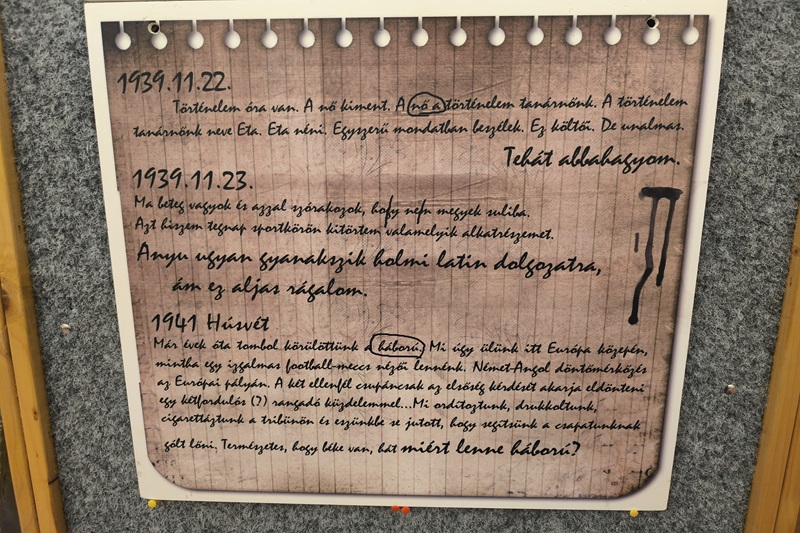 1939.11.22.
Történelem óra van. A nő kiment. A nő a történelem tanárnőnk. A történelem
tanárnőnk neve Eta. Eta néni. Egyszerű mondatban beszélek. Ez költői. De unalmas.
Tehát abbahagyom.
1939.11.23.
Ma beteg vagyok és azzal szórakozok, hogy nem megyek suliba.
Azt hiszem tegnap sportkörön kitörtem valamelyik alkatrészemet.
Anyu ugyan gyanakszik holmi latin dolgozatra,
ám ez aljas rágalom.
1941 Húsvét
Már évek óta tombol körülöttünk a háború. Mi úgy ülünk itt Európa közepén,
mintha egy izgalmas football-meccs nézői lennénk. Német-Angol döntőmérkőzés
az Európai pályán. A két ellenfél csupáncsak az elsőség kérdését akarja eldönteni
egy kétfordulós (?) rangadó küzdelemmel...Mi ordítoztunk, drukkoltunk,
cigarettáztunk a tribünön és eszünkbe se jutott, hogy segítsünk a csapatunknak
gólt lőni. Természetes, hogy béke van, hát miért lenne háború?